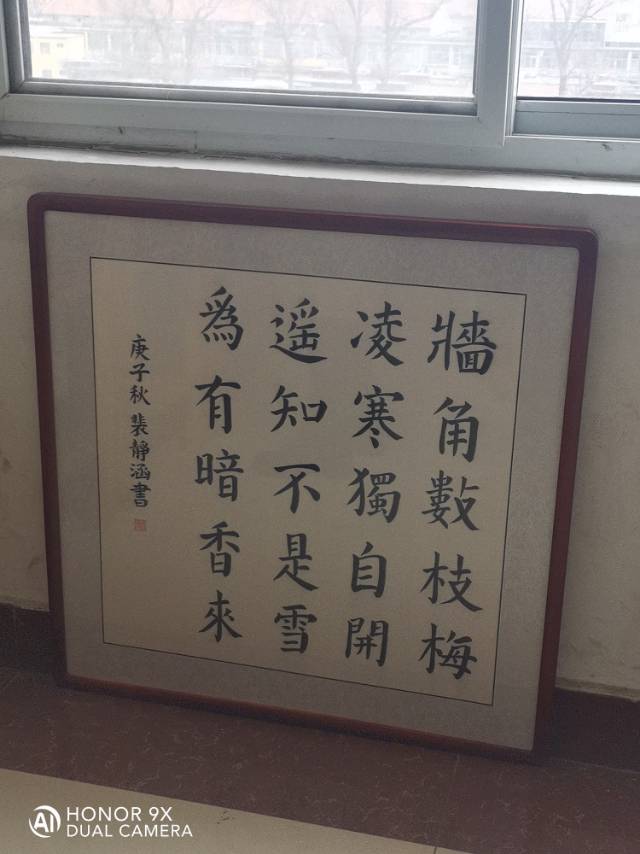 牆角數枝梅
凌寒獨自開
遥知不是雪
爲有暗香來
庚子秋 裴靜涵書
HONOR 9X
DUAL CAMERA